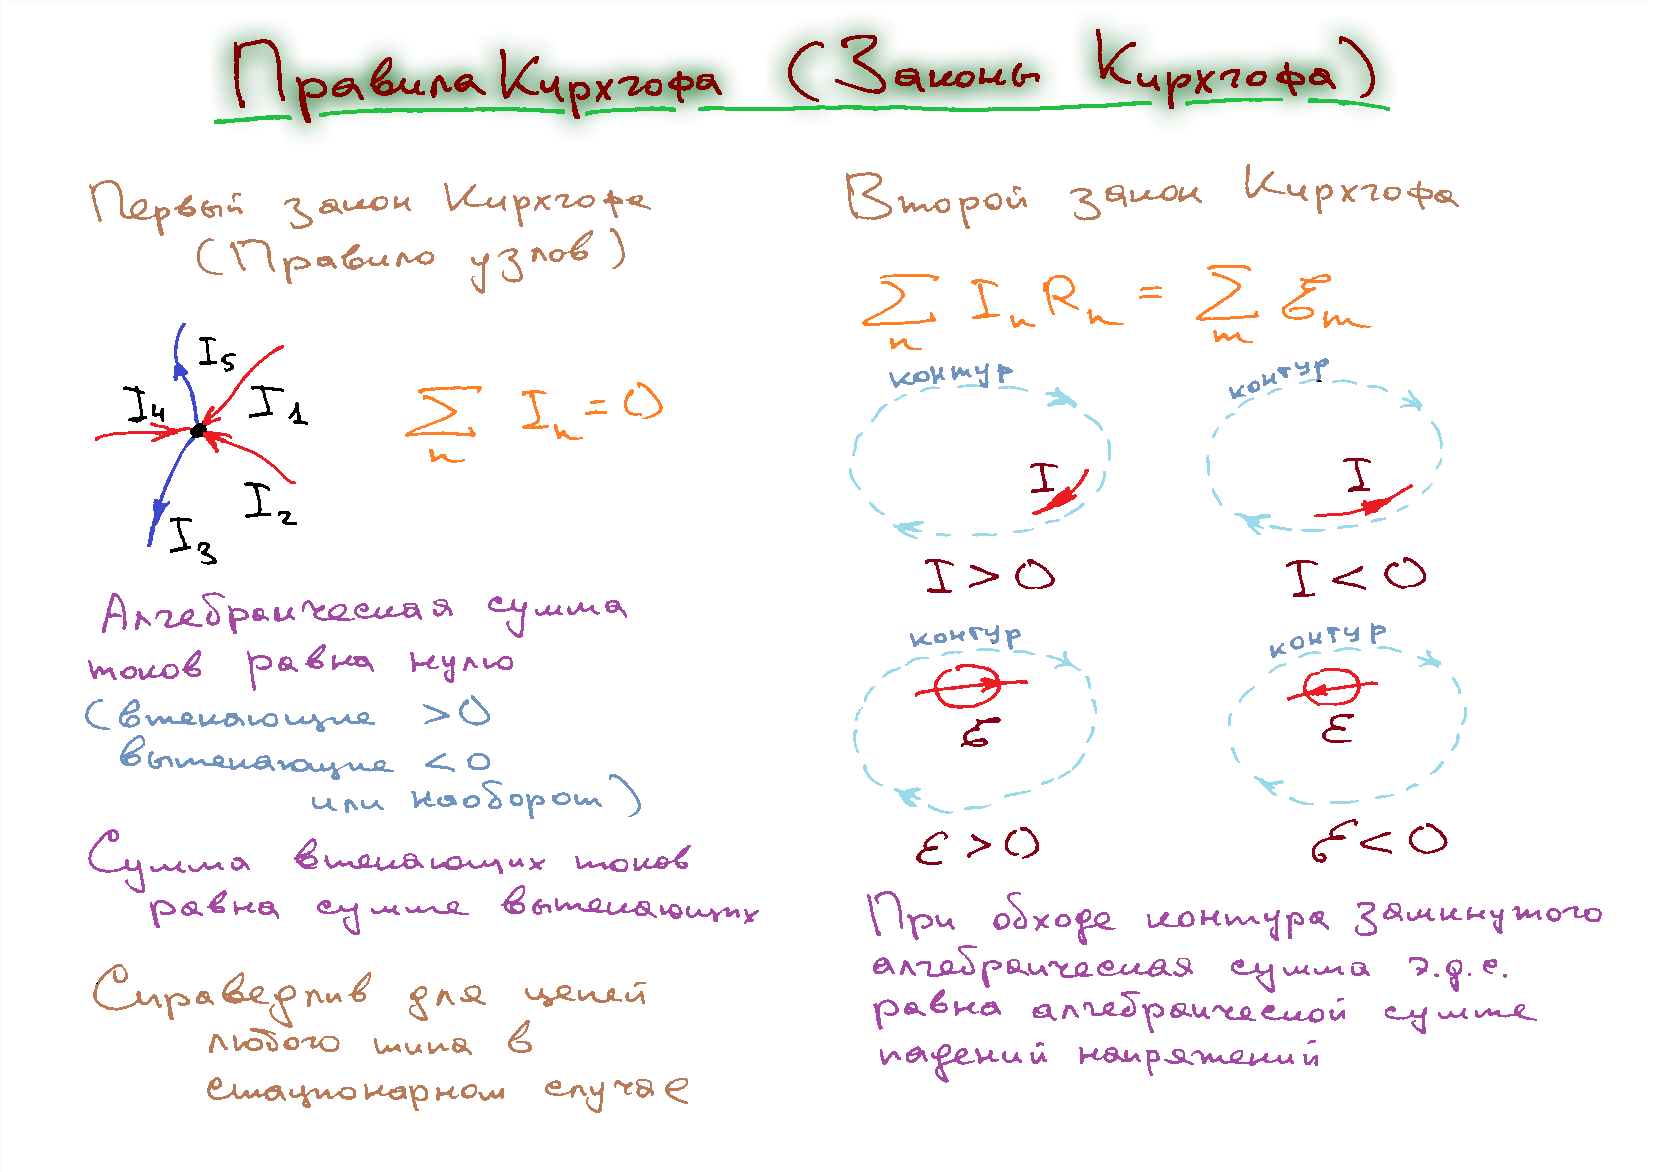 Правила Кирхгофа (Законы Кирхгофа)
Первый закон Кирхгофа
(Правило узлов)
I₅
I₄
I₁
I₂
I₃
∑ₙ Iₙ = 0
Алгебраическая сумма
токов равна нулю
(втекающие >0
вытекающие <0
или наоборот)
Сумма втекающих токов
равна сумме вытекающих
Справедлив для цепей
любого типа в
стационарном случае
Второй закон Кирхгофа
∑ₙ IₙRₙ = ∑ₘ ℰₘ
контур
I
I > 0
контур
I
I < 0
контур
ℰ
ℰ > 0
контур
ℰ
ℰ < 0
При обходе контура замкнутого
алгебраическая сумма э.д.с.
равна алгебраической сумме
падений напряжений